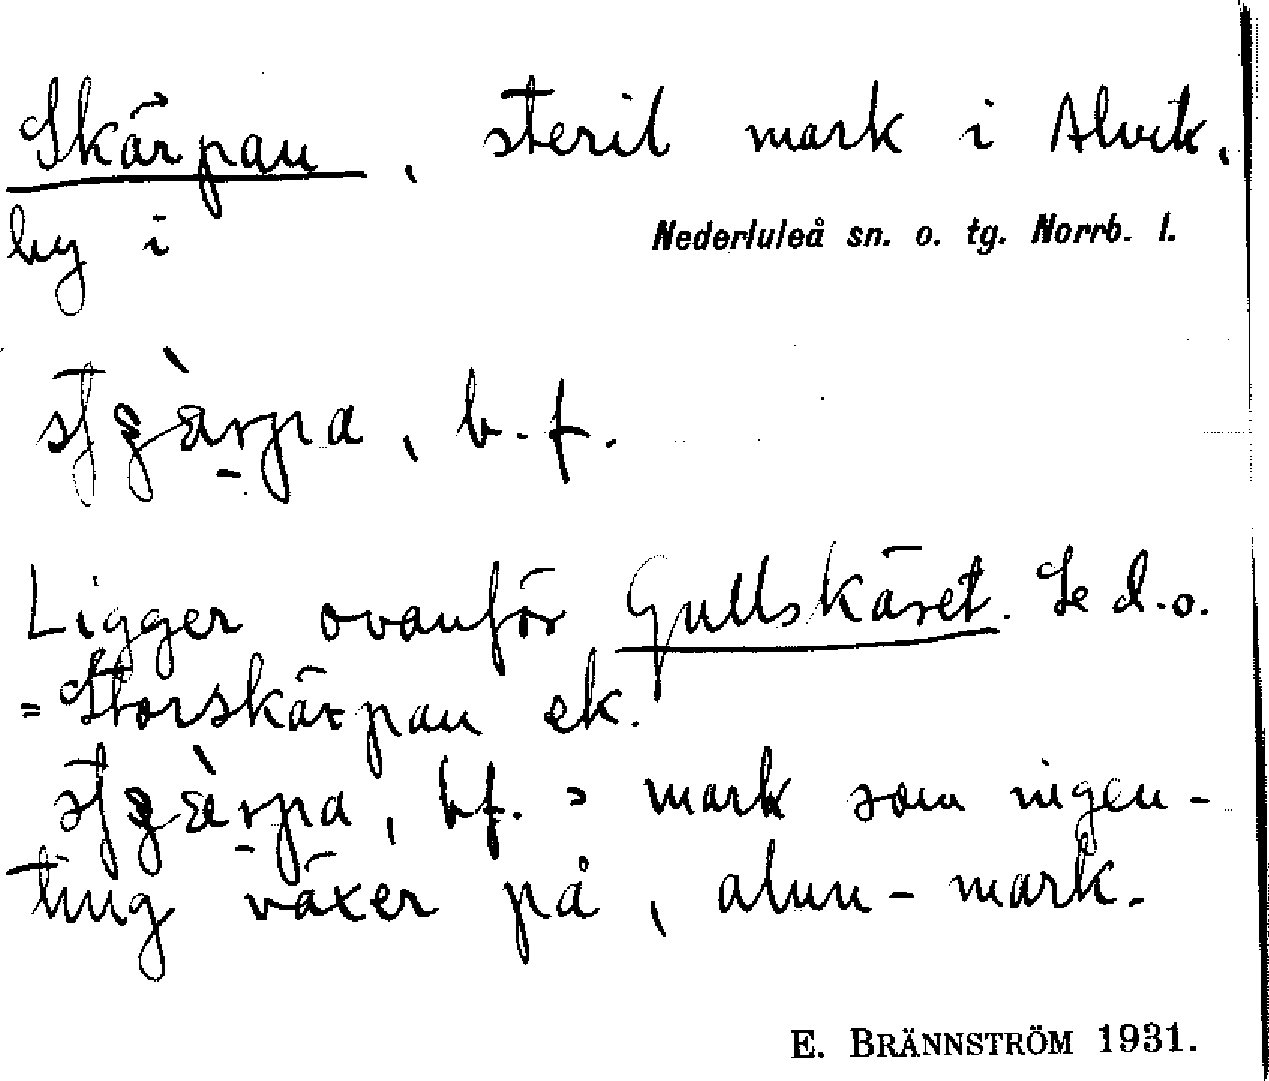 Skärpan, steril mark i Alvik,
by i Nederluleå sn. o. tg. Norrb. l.
b. f.
Ligger ovanför Gullskäret. Se d.o.
= Storskärpan ek.
bf. = mark som ingen-
ting växer på, alun-mark.
E. BRÄNNSTRÖM 1931.